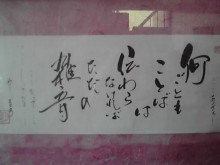 何
ごとも
ことば
は
伝わら
なければ
ただの
雑音